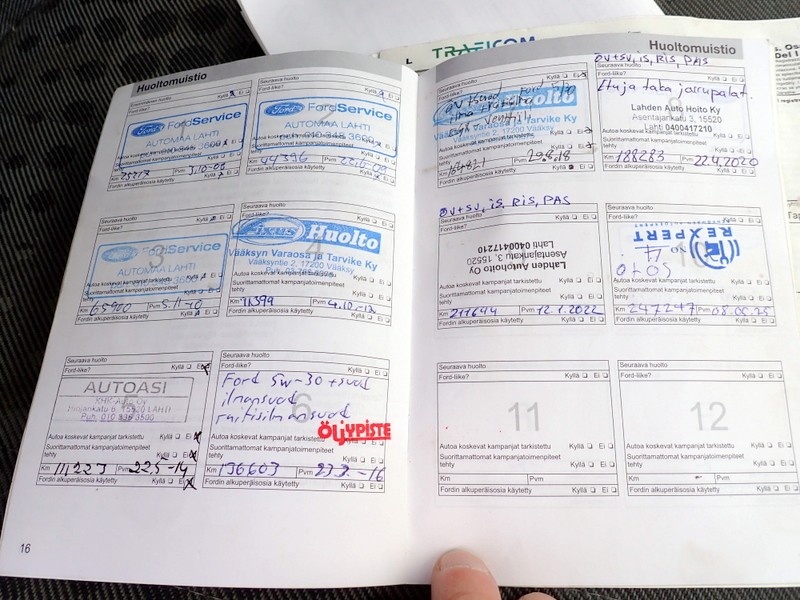 TRAFICOM
Huoltomuistio
Seuraava huolto
Ford-liike? Kyllä Ei
Ford FordService
AUTOMAA LAHTI
Autoa koskevat kampanjat tarkistettu
Suorittamattomat kampanjatoimenpiteet tehty
Km 25217 Pvm 3.10-08
Fordin alkuperäisosia käytetty Kyllä Ei
2
Ford FordService
AUTOMAA LAHTI
Km 44396 Pvm
Fordin alkuperäisosia käytetty Kyllä Ei
Seuraava huolto
Ford-liike? Kyllä Ei
3
Ford FordService
AUTOMAA LAHTI
Autoa koskevat kampanjat tarkistettu
Suorittamattomat kampanjatoimenpiteet tehty
Km 65900 Pvm 5.11-10
Fordin alkuperäisosia käytetty Kyllä Ei
Seuraava huolto
4
Fixus Huolto
Vääksyn Varaosa ja Tarvike Ky
Vääksyntie 2, 17200 Vääksy
Autoa koskevat kampanjat tarkistettu Kyllä Ei
Suorittamattomat kampanjatoimenpiteet
tehty Kyllä Ei
Km Pvm 4.10-12
Fordin alkuperäisosia käytetty Kyllä Ei
Seuraava huolto
Ford-liike? Kyllä Ei
AUTOASI
Autoa koskevat kampanjat tarkistettu Kyllä Ei
Suorittamattomat kampanjatoimenpiteet
tehty Kyllä Ei
Km 111223 Pvm 22.5-14
Fordin alkuperäisosia käytetty Kyllä Ei
Seuraava huolto
Ford-liike? Kyllä Ei
6
Ford 5w-30 + suod
ilmansuod
raitisilmansuod
ÖLJYPISTE
Autoa koskevat kampanjat tarkistettu Kyllä Ei
Suorittamattomat kampanjatoimenpiteet
tehty Kyllä Ei
Km 136603 Pvm 23.2-16
Fordin alkuperäisosia käytetty Kyllä Ei
16
Huoltomuistio
Seuraava huolto
Ford-liike? Kyllä Ei
Huolto
Varaosa ja Tarvike Ky
2, 17200 Vääksy
Autoa koskevat kampanjat tarkistettu
Suorittamattomat kampanjatoimenpiteet
tehty
Km 164821 Pvm 29.8.18
Fordin alkuperäisosia käytetty Kyllä Ei
ÖV+SV, IS, RIS, PAS
Seuraava huolto
Ford-liike?
Etu ja taka jarrupalat.
8
Lahden Auto Hoito Ky
Asentajankatu 3, 15520
Lahti 0400417210
Autoa koskevat kampanjat tarkistettu Kyllä Ei
Suorittamattomat kampanjatoimenpiteet
tehty Kyllä Ei
Km 188283 Pvm 22.4.2020
Fordin alkuperäisosia käytetty Kyllä Ei
ÖV+SV, IS, RIS, PAS
Seuraava huolto
Ford-liike? Kyllä Ei
Lahden Autohoito Oy
Asentajankatu 3, 15520
Lahti 0400417210
Autoa koskevat kampanjat tarkistettu
Suorittamattomat kampanjatoimenpiteet
tehty Kyllä Ei
Km 211694 Pvm 12.1.2022
Fordin alkuperäisosia käytetty Kyllä Ei
Seuraava huolto
Ford-liike? Kyllä Ei
REXPERT
5040
Autoa koskevat kampanjat tarkistettu Kyllä Ei
Suorittamattomat kampanjatoimenpiteet
tehty Kyllä Ei
Km 247247 Pvm
Fordin alkuperäisosia käytetty Kyllä Ei
Seuraava huolto
Ford-liike? Kyllä Ei
11
Autoa koskevat kampanjat tarkistettu Kyllä Ei
Suorittamattomat kampanjatoimenpiteet
tehty Kyllä Ei
Km Pvm
Fordin alkuperäisosia käytetty Kyllä Ei
Seuraava huolto
Ford-liike? Kyllä Ei
12
Autoa koskevat kampanjat tarkistettu Kyllä Ei
Suorittamattomat kampanjatoimenpiteet
tehty Kyllä Ei
Km Pvm
Fordin alkuperäisosia käytetty Kyllä Ei